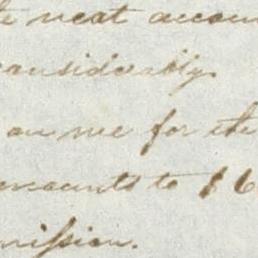 next accoun
considerably.
on me for the
amounts to $ 6
mission.